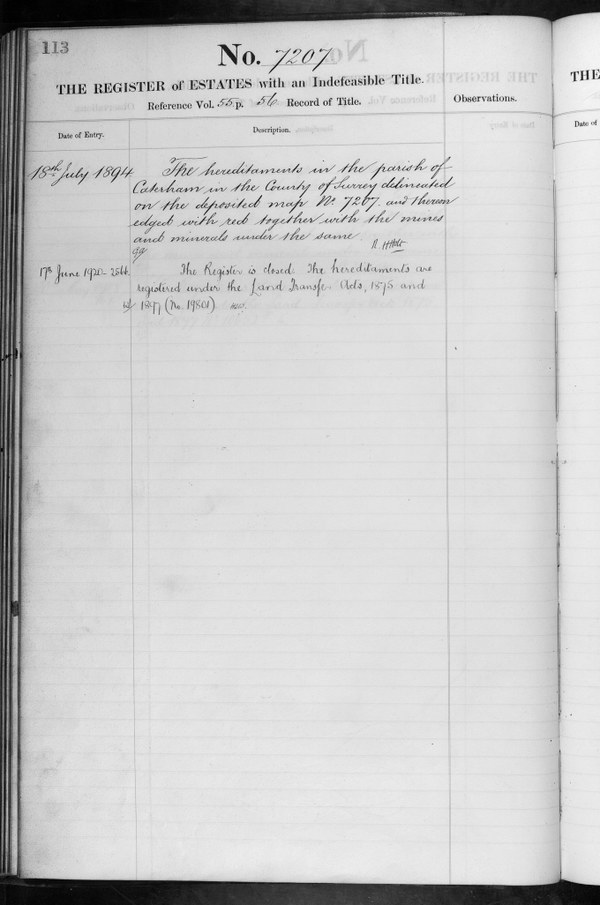 113
No. 7207
THE REGISTER of ESTATES with an Indefeasible Title.
Reference Vol. 55 p. 56 Record of Title.
Observations.
Date of Entry.
Description.
18th July 1894
The hereditaments in the parish of
Caterham in the County of Surrey delineated
on the deposited map No. 7207 and thereon
edged with red together with the mines
and minerals under the same
17th June 1920
The Register is closed. The hereditaments are
registered under the Land Transfer Acts, 1875 and
1897, (No. 19801)
THE
Date of